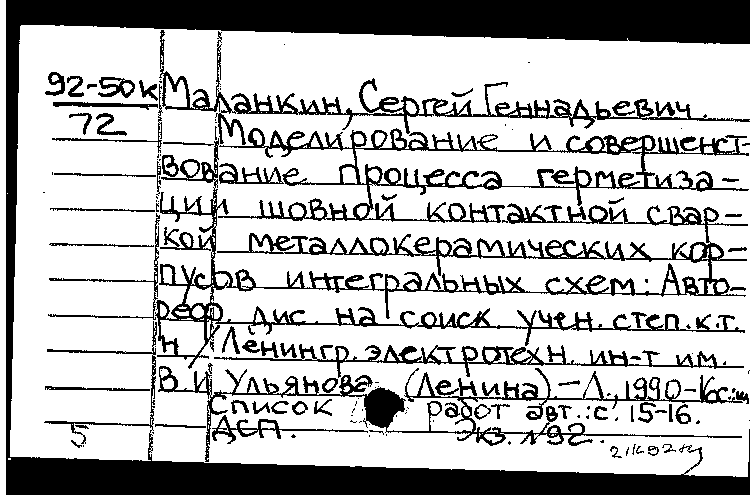 92-50к Маланкин, Сергей Геннадьевич.
72 Моделирование и совершенст-
вование процесса герметиза-
ции шовной контактной свар-
кой металлокерамических кор-
пусов интегральных схем: Авто-
реф. дис. на соиск. учен. степ. к.т.
н. / Ленингр. электротехн. ин-т им.
В.И. Ульянова (Ленина).-Л., 1990-16с.:ил
Список работ авт.: с. 15-16.
ДСП. Экз. №92.
5